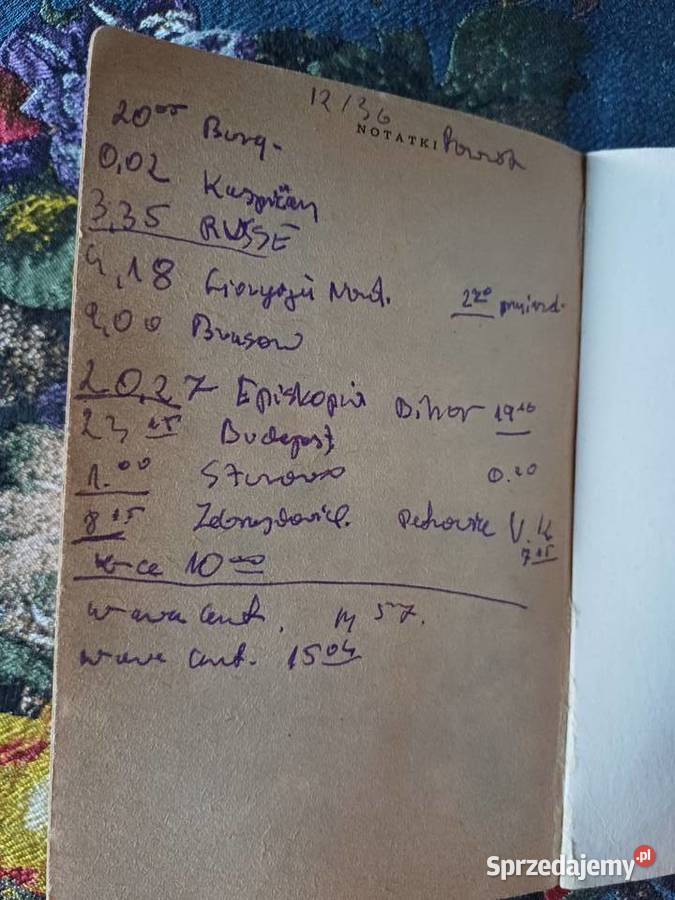 12/36
NOTATKI Powrót
20⁰⁵ Burg.
0,02 Kaspičan
3,35 RUSSE
4,18 Giorgiu Nord. 2²⁰
9,00 Brasow
20,27 Episkopia Bihor 19¹⁰
23¹⁵ Budapeszt
1.⁰⁰ Szturowo 0.20
8¹⁵ Zebrzydowice. Petrovice V.K
7¹⁵
K-ce 10⁰⁰
W-awa Cent. 14 57.
W-awa Cent. 15⁰⁴
Sprzedajemy.pl